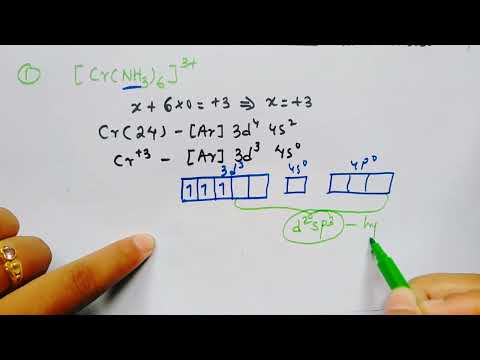 ① [Cr(NH₃)₆]³⁺
x + 6×0 = +3 ⇒ x = +3
Cr(24) – [Ar] 3d⁴ 4s²
Cr⁺³ – [Ar] 3d³ 4s⁰
3d³ 4s⁰ 4p⁰
↿ ↿ ↿
d²sp³ – hy